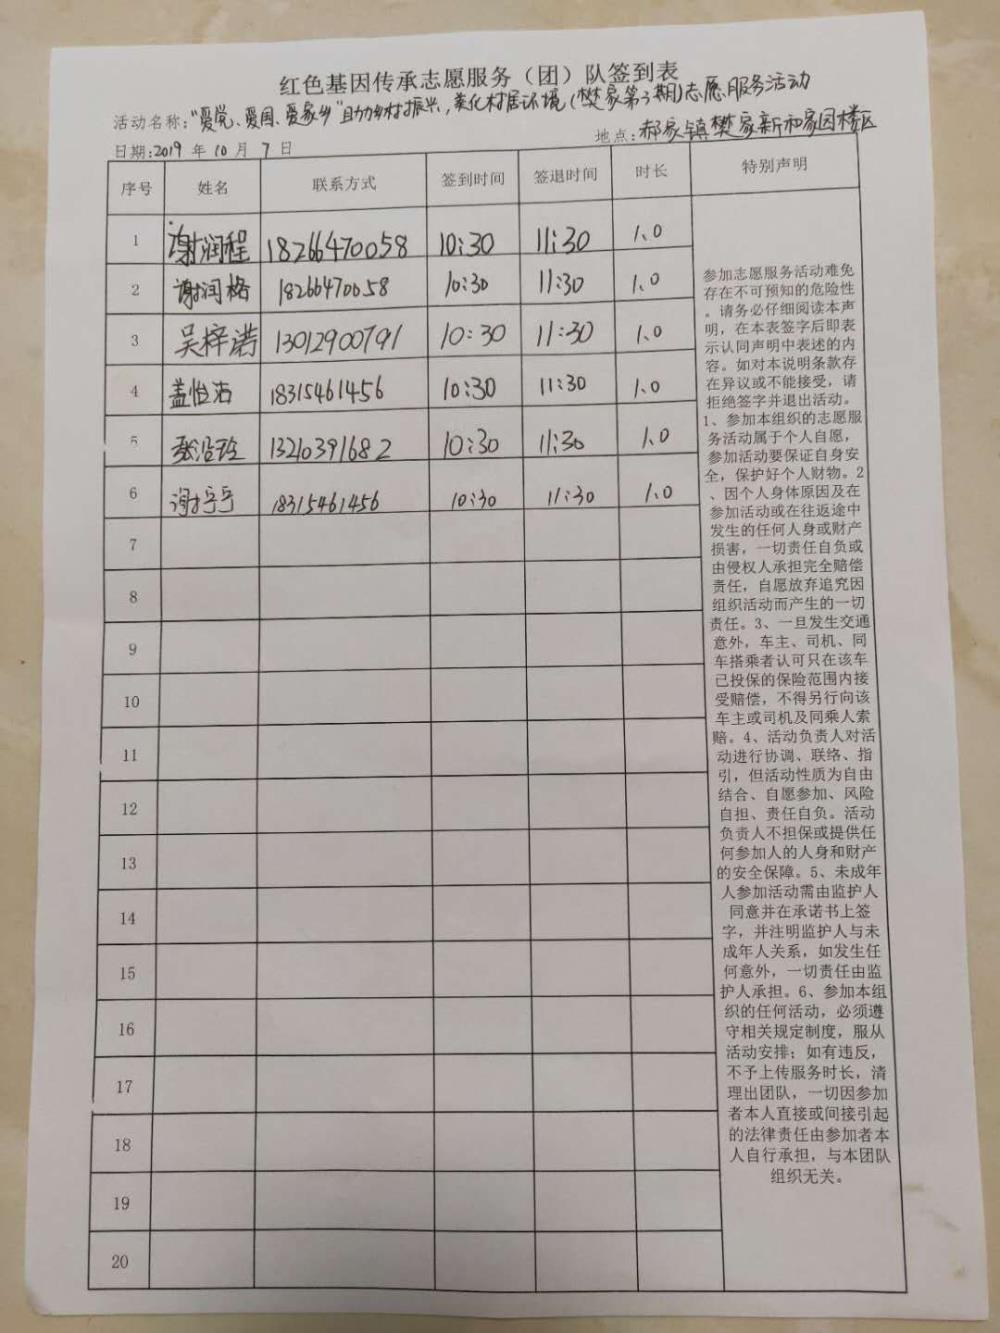 红色基因传承志愿服务（团）队签到表
活动名称："爱党、爱国、爱家乡"助力乡村振兴，美化村居环境（樊家第3期）志愿服务活动
日期：2019 年 10 月 7 日 地点：郝家镇樊家新和家园楼区
序号 姓名 联系方式 签到时间 签退时间 时长 特别声明
1 谢润程 18266470058 10:30 11:30 1.0
2 谢润格 18266470058 10:30 11:30 1.0
3 吴梓诺 13012900791 10:30 11:30 1.0
4 盖怡洁 18315461456 10:30 11:30 1.0
5 13210391682 10:30 11:30 1.0
6 18315461456 10:30 11:30 1.0
7
8
9
10
11
12
13
14
15
16
17
18
19
20
参加志愿服务活动难免
存在不可预知的危险性
。请务必仔细阅读本声
明，在本表签字后即表
示认同声明中表述的内
容。如对本说明条款存
在异议或不能接受，请
拒绝签字并退出活动。
1、参加本组织的志愿服
务活动属于个人自愿，
参加活动要保证自身安
全，保护好个人财物。2
、因个人身体原因及在
参加活动或在往返途中
发生的任何人身或财产
损害，一切责任自负或
由侵权人承担完全赔偿
责任，自愿放弃追究因
组织活动而产生的一切
责任。3、一旦发生交通
意外，车主、司机、同
车搭乘者认可只在该车
已投保的保险范围内接
受赔偿，不得另行向该
车主或司机及同乘人索
赔。4、活动负责人对活
动进行协调、联络、指
引，但活动性质为自由
结合、自愿参加、风险
自担、责任自负。活动
负责人不担保或提供任
何参加人的人身和财产
的安全保障。5、未成年
人参加活动需由监护人
同意并在承诺书上签
字，并注明监护人与未
成年人关系，如发生任
何意外，一切责任由监
护人承担。6、参加本组
织的任何活动，必须遵
守相关规定制度，服从
活动安排；如有违反，
不予上传服务时长，清
理出团队，一切因参加
者本人直接或间接引起
的法律责任由参加者本
人自行承担，与本团队
组织无关。